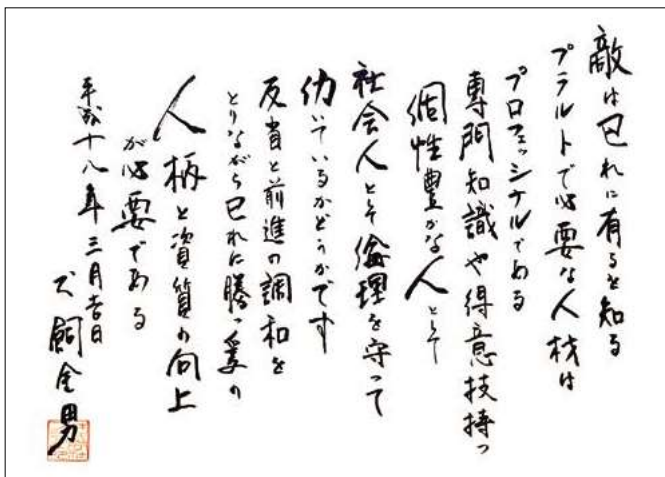 敵は己れに有ると知る
プラルトで必要な人材は
プロフェッショナルである
専門知識や得意技持つ
個性豊かな人として
社会人として倫理を守って
働いているかどうかです
反省と前進の調和を
とりながら己れに勝つ
人柄と資質の向上
が必要である
平成十八年三月吉日
犬飼金男